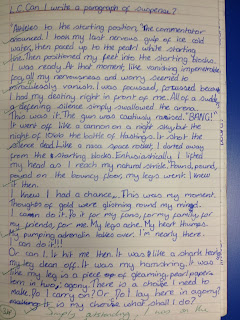 L.C. Can I write a paragraph of suspense?
"Athletes to the starting position," The commentator
announced. I took my last nervous gulp of ice cold
water, then paced up to the pearl white starting
line. Then positioned my feet into the starting blocks.
I was ready. At that moment, like vanishing impenetrable
fog, all my nervousness and worry seemed to
miraculously vanish. I was focussed, focussed because
I had my destiny right in front of me. All of a sudden,
a defening silence simply swallowed the arena.
This was it. The gun was cautiously raised. "BANG!"
It went off like a cannon on a night sky but the
night of the battle of Hastings. In short the
silence died. Like a nasa space rocket, I darted away
from the starting blocks. Enthusiastically I lifted
my head as I reach my natural stride. Pound, pound,
payed on the bouncy floor, my legs went. I knew
it then.
I knew I had a chance. This was my moment.
Thoughts of gold were glistning round my mind.
I can do it. Do it for my fans, for my family, for
my friends, for me. My legs ache. My heart thumps.
My pumping adrenalin takes over. I'm nearly there.
I can do it!!!
Or can I. It hit me then. It was like a shark tearing
my leg clean off. It was my hamstring. It was
like my leg is a piece of gleaming, pearl paper,
torn in two; agony. There is a choice I need to
make. Do I carry on? Or do I lay here in agony?
it is my choice. What shall I do?